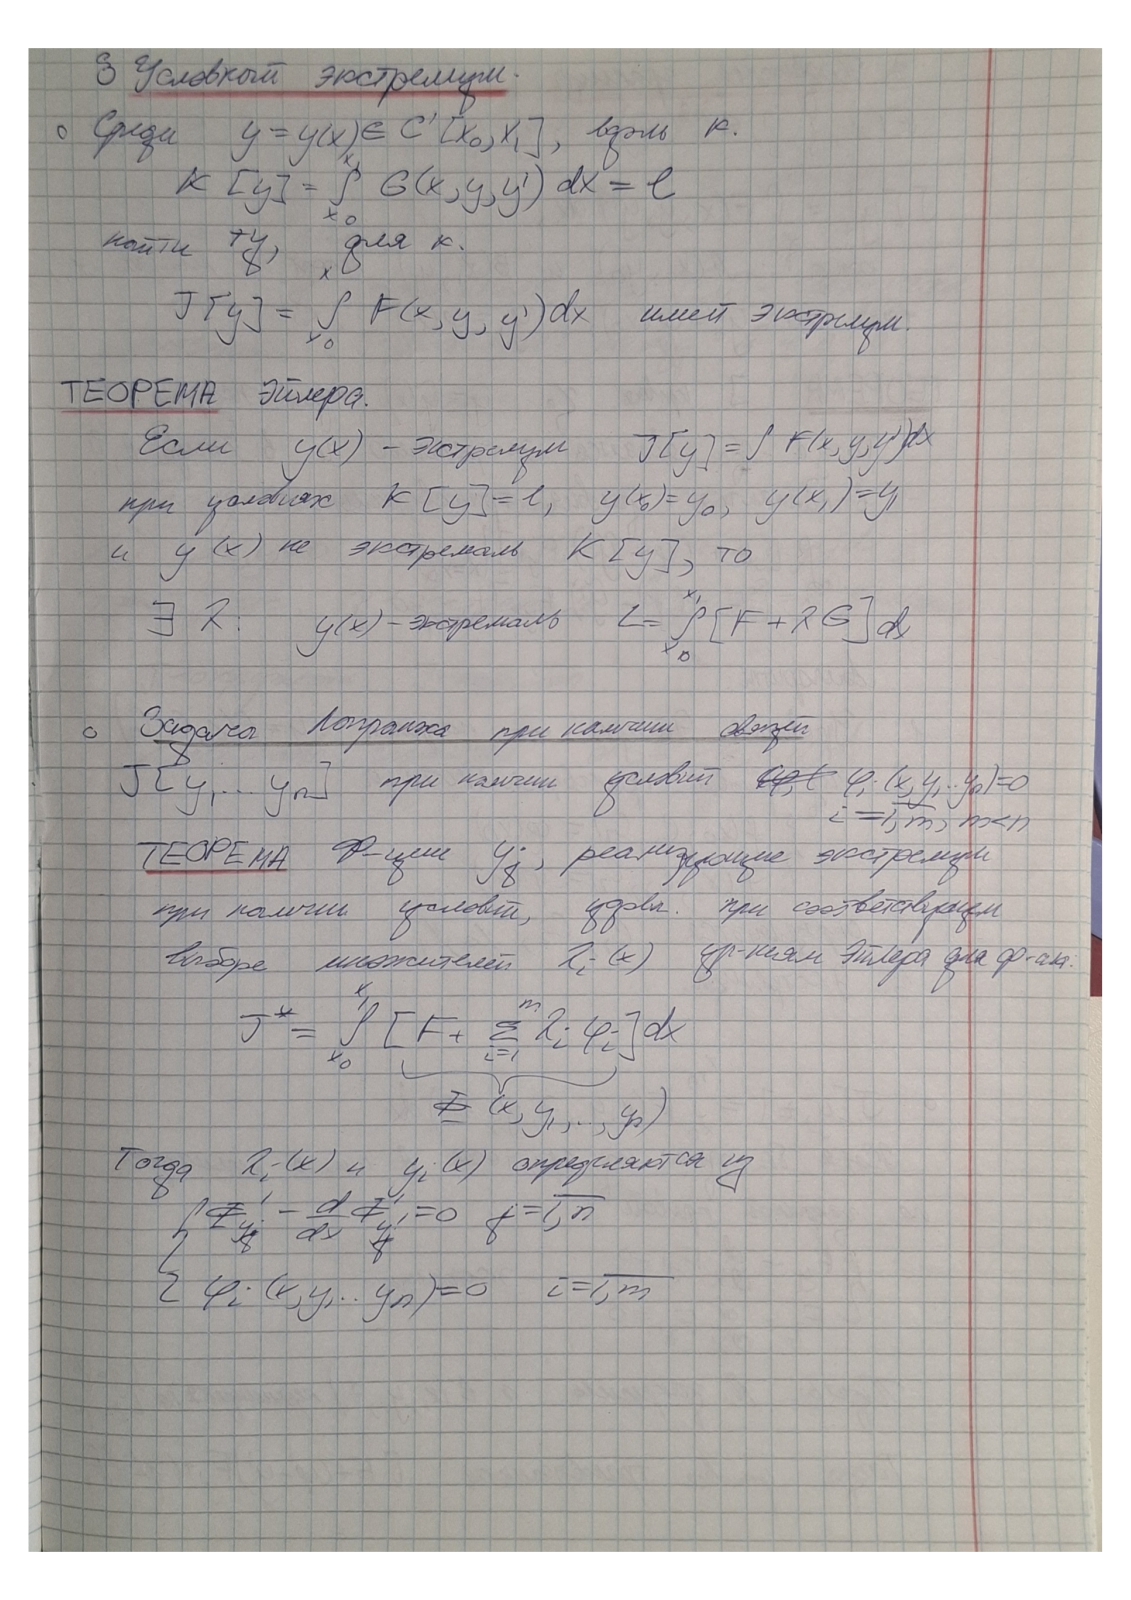 3 Условный экстремум.
Среди y = y(x) ∈ C' [x₀, x₁], вдоль к.
K [y] = ∫_{x₀}^{x₁} G(x, y, y') dx = l
найти ту, для к.
J[y] = ∫_{x₀}^{x} F(x, y, y') dx имеет экстремум.
ТЕОРЕМА Эйлера.
Если y(x) – экстремум J[y] = ∫ F(x, y, y') dx
при условиях K [y] = l, y(x₀) = y₀, y(x₁) = y₁
и y(x) не экстремаль K [y], то
∃ λ: y(x) – экстремаль L = ∫_{x₀}^{x₁} [F + λG] dx
Задача Лагранжа при наличии связей
J[y₁ ... yₙ] при наличии условий φᵢ (x, y₁ .. yₙ) = 0
i = 1, m, m < n
ТЕОРЕМА Ф-ции yⱼ, реализующие экстремум
при наличии условий, удовл. при соответствующем
выборе множителей λᵢ (x) ур-ниям Эйлера для ф-ла:
J* = ∫_{x₀}^{x₁} [F + Σ_{i=1}^{m} λᵢ φᵢ] dx
Φ (x, y₁, ..., yₙ)
Тогда λᵢ(x) и yᵢ(x) определяются из
{ Φ'_{yⱼ} – d/dx Φ'_{yⱼ'} = 0 j = 1, n
φᵢ (x, y₁ .. yₙ) = 0 i = 1, m